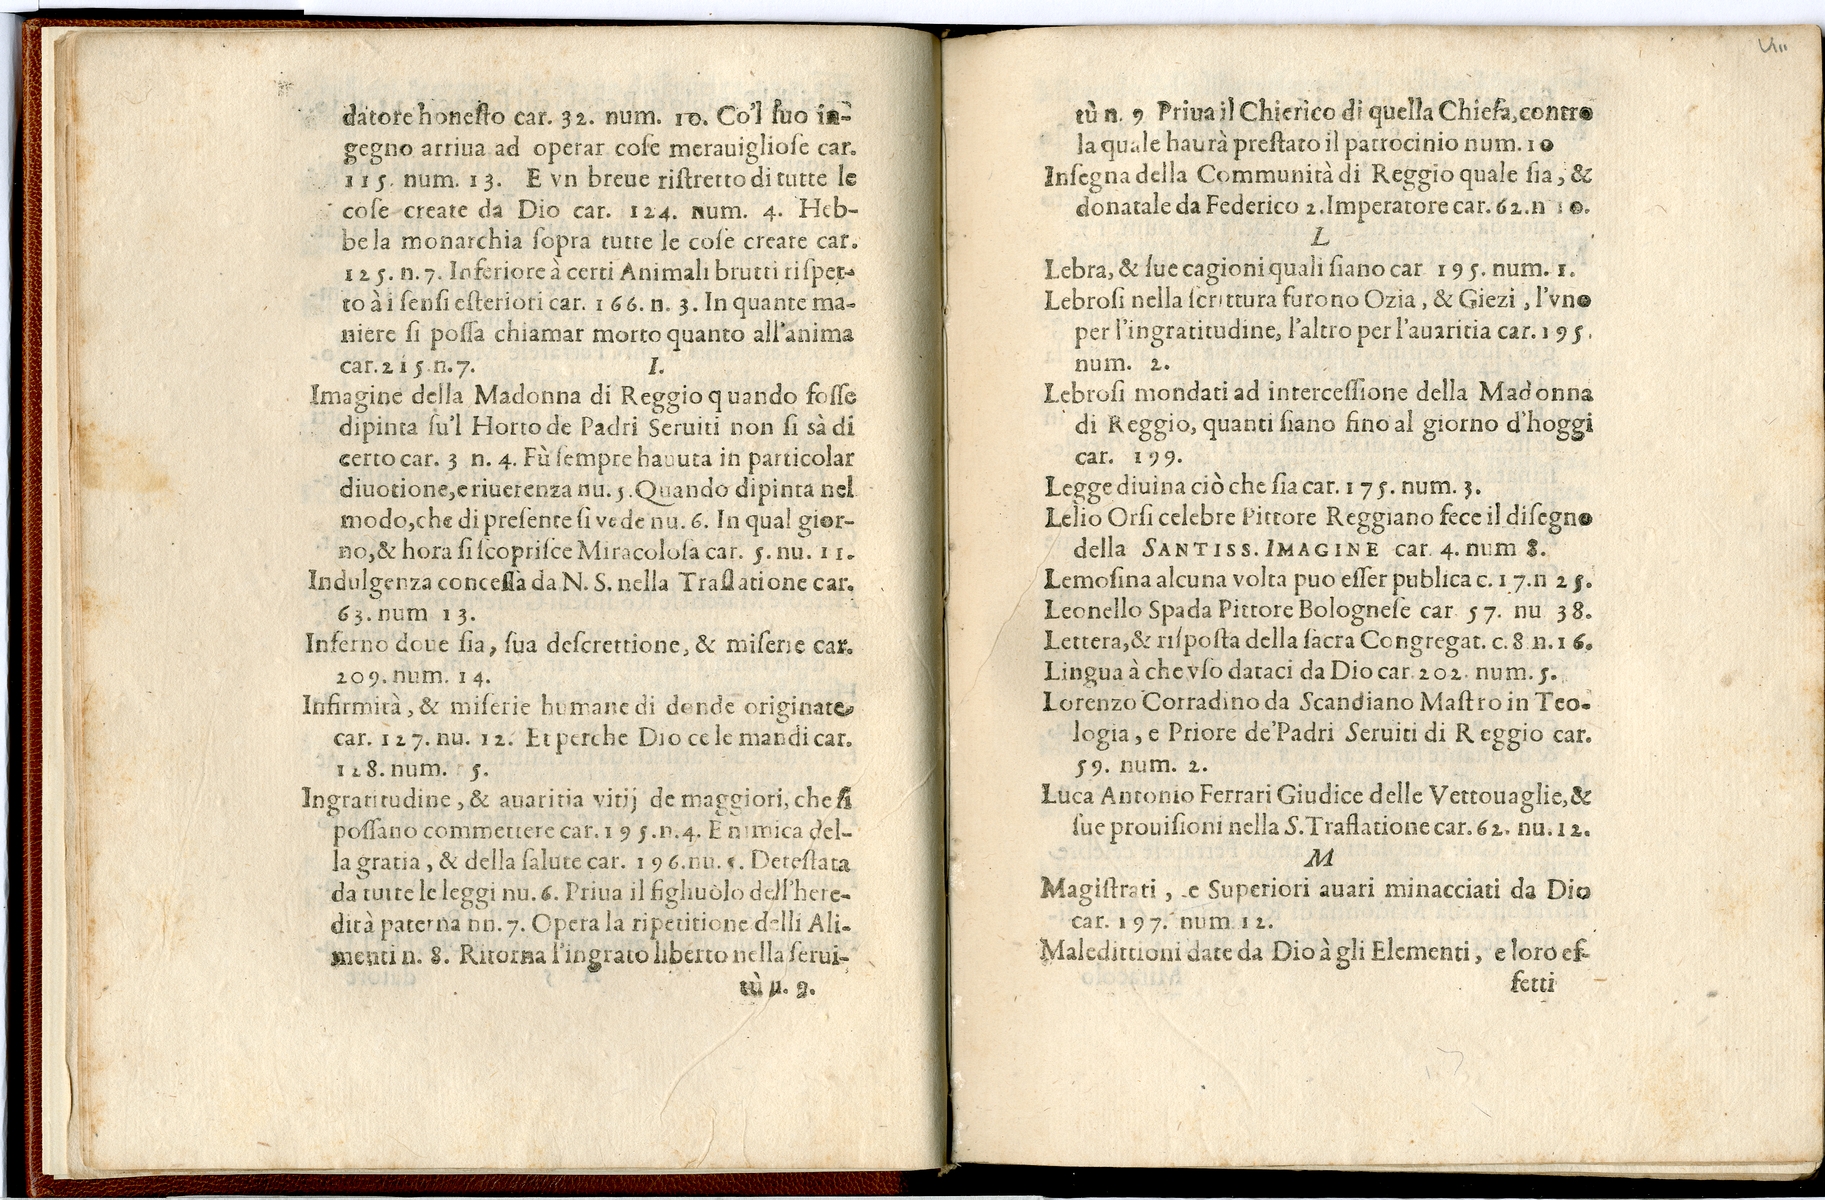 datore honesto car. 32. num. 10. Co'l suo in-
gegno arriua ad operar cose merauigliose car.
115. num. 13. E vn breue ristretto di tutte le
cose create da Dio car. 124. num. 4. Heb-
be la monarchia sopra tutte le cose create car.
125. n. 7. Inferiore à certi Animali brutti rispet-
to à i sensi esteriori car. 166. n. 3. In quante ma-
niere si possa chiamar morto quanto all'anima
car. 215. n. 7. I.
Imagine della Madonna di Reggio quando fosse
dipinta su'l Horto de Padri Seruiti non si sà di
certo car. 3 n. 4. Fù sempre hauuta in particolar
diuotione, e riuerenza nu. 5. Quando dipinta nel
modo, che di presente si vede nu. 6. In qual gior-
no, & hora si scoprisce Miracolosa car. 5. nu. 11.
Indulgenza concessa da N. S. nella Traslatione car.
63. num 13.
Inferno doue sia, sua descrettione, & miserie car.
209. num. 14.
Infirmità, & miserie humane di donde originate
car. 127. nu. 12. Et perche Dio ce le mandi car.
128. num. 5.
Ingratitudine, & auaritia vitij de maggiori, che si
possano commettere car. 195. n. 4. E nimica del-
la gratia, & della salute car. 196. nu. 5. Detestata
da tutte le leggi nu. 6. Priua il figliuolo dell'here-
dità paterna nn. 7. Opera la ripetitione delli Ali-
menti n. 8. Ritorna l'ingrato liberto nella serui-
tù n. 9.
VIII
tù n. 9 Priua il Chierico di quella Chiesa, contro
la quale haurà prestato il patrocinio num. 10
Insegna della Communità di Reggio quale sia, &
donatale da Federico 2. Imperatore car. 62. n 10.
L
Lebra, & sue cagioni quali siano car 195. num. 1.
Lebrosi nella scrittura furono Ozia, & Giezi, l'vno
per l'ingratitudine, l'altro per l'auaritia car. 195.
num. 2.
Lebrosi mondati ad intercessione della Madonna
di Reggio, quanti siano fino al giorno d'hoggi
car. 199.
Legge diuina ciò che sia car. 175. num. 3.
Lelio Orsi celebre Pittore Reggiano fece il disegno
della SANTISS. IMAGINE car. 4. num 8.
Lemosina alcuna volta puo esser publica c. 17. n 25.
Leonello Spada Pittore Bolognese car 57. nu 38.
Lettera, & risposta della sacra Congregat. c. 8 n. 16.
Lingua à che vso dataci da Dio car. 202. num. 5.
Lorenzo Corradino da Scandiano Mastro in Teo-
logia, e Priore de'Padri Seruiti di Reggio car.
59. num. 2.
Luca Antonio Ferrari Giudice delle Vettouaglie, &
sue prouisioni nella S. Traslatione car. 62. nu. 12.
M
Magistrati, e Superiori auari minacciati da Dio
car. 197. num 12.
Maledittioni date da Dio à gli Elementi, e loro ef-
fetti